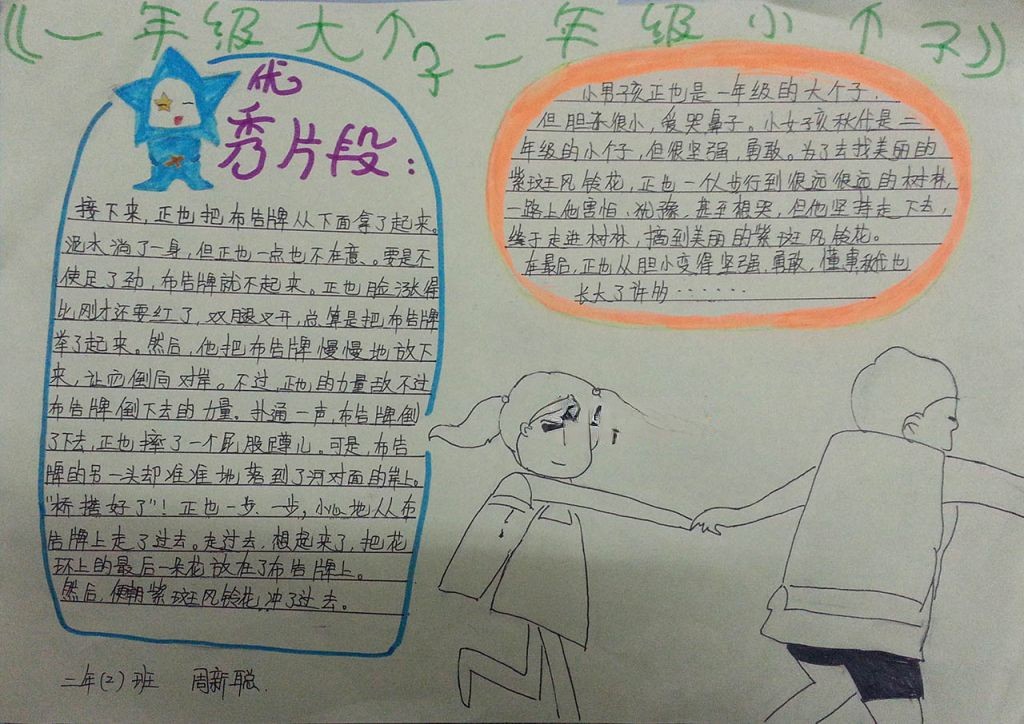 《一年级大个子二年级小个子》
优
秀片段：
接下来，正也把布告牌从下面拿了起来。
泥水淌了一身，但正也一点也不在意。要是不
使足了劲，布告牌就不起来。正也脸涨得
比刚才还要红了，双腿叉开，总算是把布告牌
举了起来。然后，他把布告牌慢慢地放下
来，让它倒向对岸。不过，正也的力量敌不过
布告牌倒下去的力量。扑通一声，布告牌倒
了下去，正也摔了一个屁股蹲儿。可是，布告
牌的另一头却准准地落到了河对面的岸上。
"桥搭好了"！正也一步、一步，小心地从布
告牌上走了过去。走过去，想起来了，把花
环上的最后一朵花放在了布告牌上。
然后，朝紫斑风铃花，冲了过去。
小男孩正也是一年级的大个子，
但胆很小，爱哭鼻子。小女孩秋代是二
年级的小个子，但很坚强，勇敢。为了去找美丽的
紫斑风铃花，正也一个人步行到很远很远的树林，
一路上他害怕、犹豫，甚至想哭，但他坚持走下去，
终于走进树林，摘到美丽的紫斑风铃花。
在最后，正也从胆小变得坚强，勇敢，懂事，秋代也
长大了许的……
二年(2)班 周新聪